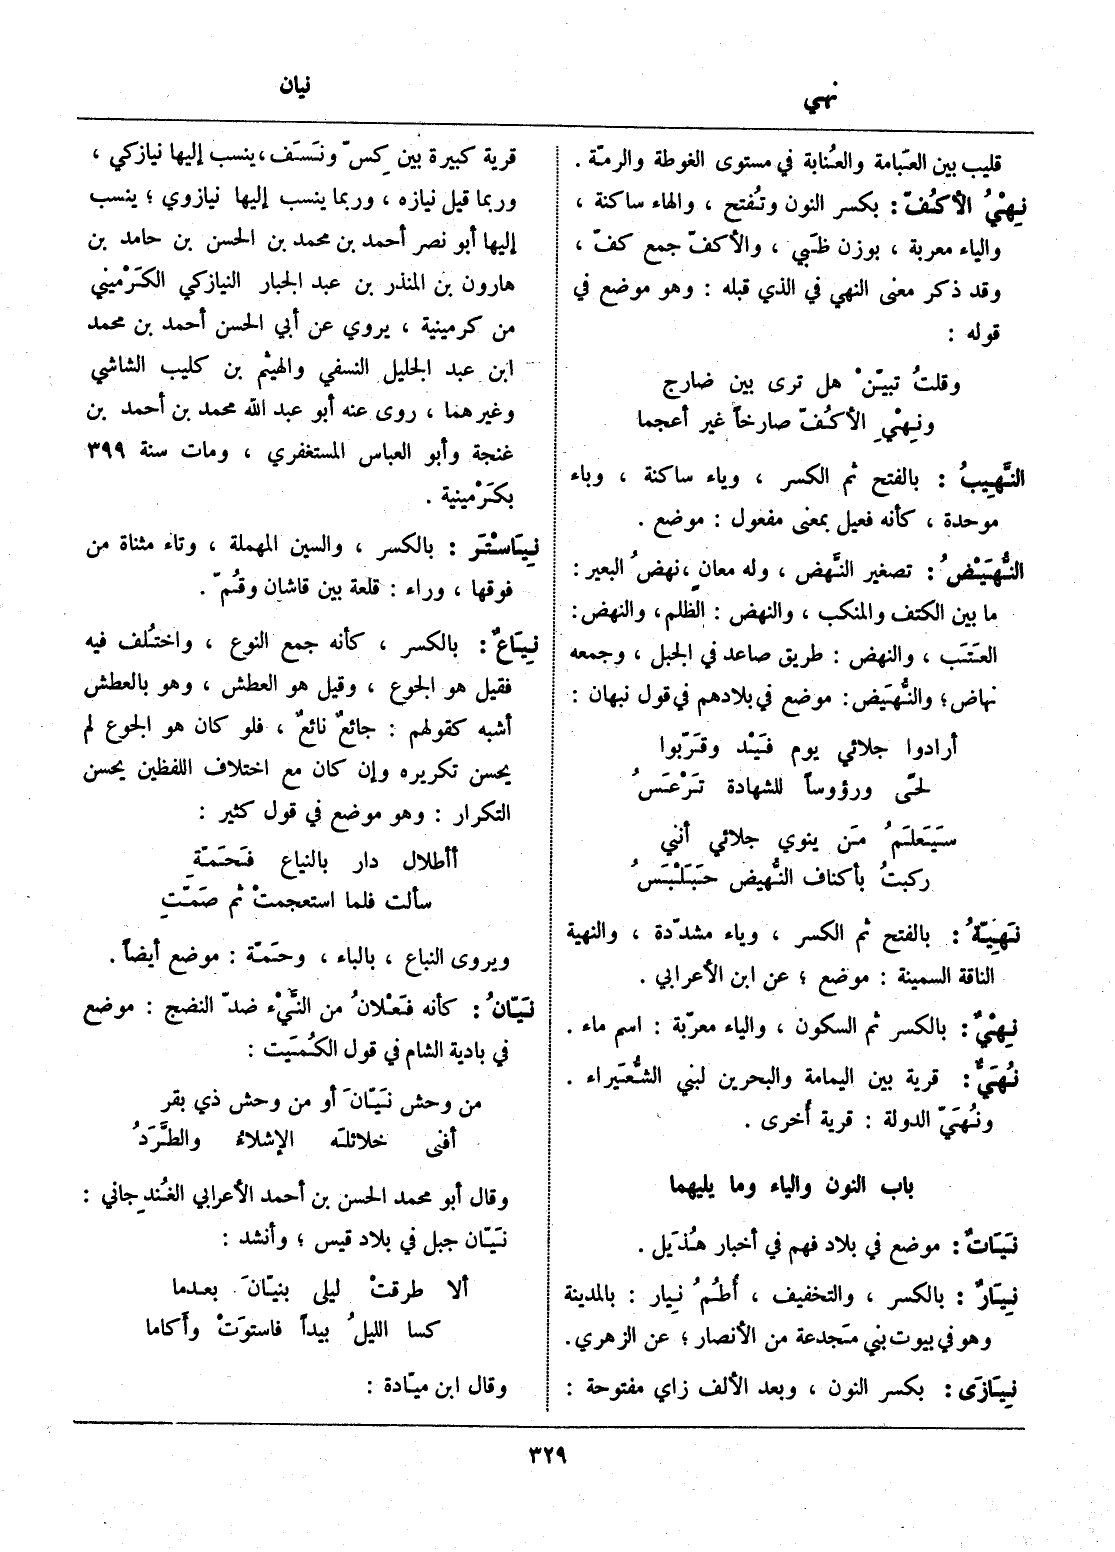 نهي
نيان
قليب بين العبامة والعُنابة في مستوى الغوطة والرمّة .
نِهْيُ الأكُفّ : بكسر النون وتُفتح ، والهاء ساكنة ،
والياء معربة ، بوزن ظَبْي ، والأكفّ جمع كفّ ،
وقد ذكر معنى النهي في الذي قبله : وهو موضع في
قوله :
وقلتُ تبيّنْ هل ترى بين ضارج
ونِهْيِ الأكُفّ صارخاً غير أعجما
النَّهِيبُ : بالفتح ثم الكسر ، وياء ساكنة ، وباء
موحدة ، كأنه فعيل بمعنى مفعول : موضع .
النُّهَيْضُ : تصغير النَّهض ، وله معانٍ ، نهضُ البعير :
ما بين الكتف والمنكب ، والنهض : الظلم ، والنهض :
العتَب ، والنهض : طريق صاعد في الجبل ، وجمعه
نهاض ؛ والنُّهَيض : موضع في بلادهم في قول نبهان :
أرادوا جلائي يوم فَيْد وقرّبوا
لحًى ورؤوساً للشهادة تَرْعَسُ
سَيَعلَمُ مَن ينوي جلائي أنني
ركبتُ بأكناف النُّهيض حَبَلْبَسُ
نَهِيّةُ : بالفتح ثم الكسر ، وياء مشدّدة ، والنهية
الناقة السمينة : موضع ؛ عن ابن الأعرابي .
نِهْيٌ : بالكسر ثم السكون ، والياء معرّبة : اسم ماء .
نُهَيٌّ : قرية بين اليمامة والبحرين لبني الشُّعَيراء .
ونُهَيّ الدولة : قرية أُخرى .
باب النون والياء وما يليهما
نَيَاتٌ : موضع في بلاد فهم في أخبار هُذَيل .
نِيَارٌ : بالكسر ، والتخفيف ، أُطُمُ نِيار : بالمدينة
وهو في بيوت بني مَجدعة من الأنصار ؛ عن الزهري .
نِيَازَى : بكسر النون ، وبعد الألف زاي مفتوحة :
قرية كبيرة بين كِسّ ونَسَف ، ينسب إليها نيازكي ،
وربما قيل نيازه ، وربما ينسب إليها نيازوي ؛ ينسب
إليها أبو نصر أحمد بن محمد بن الحسن بن حامد بن
هارون بن المنذر بن عبد الجبار النيازكي الكَرْميني
من كرمينية ، يروي عن أبي الحسن أحمد بن محمد
ابن عبد الجليل النسفي والهيثم بن كليب الشاشي
وغيرهما ، روى عنه أبو عبد الله محمد بن أحمد بن
غنجة وأبو العباس المستغفري ، ومات سنة ٣٩٩
بكَرْمينية .
نِيَاسْتَر : بالكسر ، والسين المهملة ، وتاء مثناة من
فوقها ، وراء : قلعة بين قاشان وقُمّ .
نِيَاعٌ : بالكسر ، كأنه جمع النوع ، واختُلف فيه
فقيل هو الجوع ، وقيل هو العطش ، وهو بالعطش
أشبه كقولهم : جائعٌ نائعٌ ، فلو كان هو الجوع لم
يحسن تكريره وإن كان مع اختلاف اللفظين يحسن
التكرار : وهو موضع في قول كثير :
أأطلال دار بالنياع فحَمّةِ
سألت فلما استعجمتْ ثم صَمّتِ
ويروى النباع ، بالباء ، وحَمّة : موضع أيضاً .
نَيّانُ : كأنه فَعْلانُ من النَّيْء ضدّ النضج : موضع
في بادية الشام في قول الكُمَيت :
من وحش نَيّانَ أو من وحش ذي بقر
أفنى خلائلَه الإشلاءُ والطَّرَدُ
وقال أبو محمد الحسن بن أحمد الأعرابي الغُندِجاني :
نَيّان جبل في بلاد قيس ؛ وأنشد :
ألا طرقتْ ليلى بنيّانَ بعدما
كسا الليلُ بيداً فاستوَتْ وأكاما
وقال ابن ميّادة :
٣٢٩